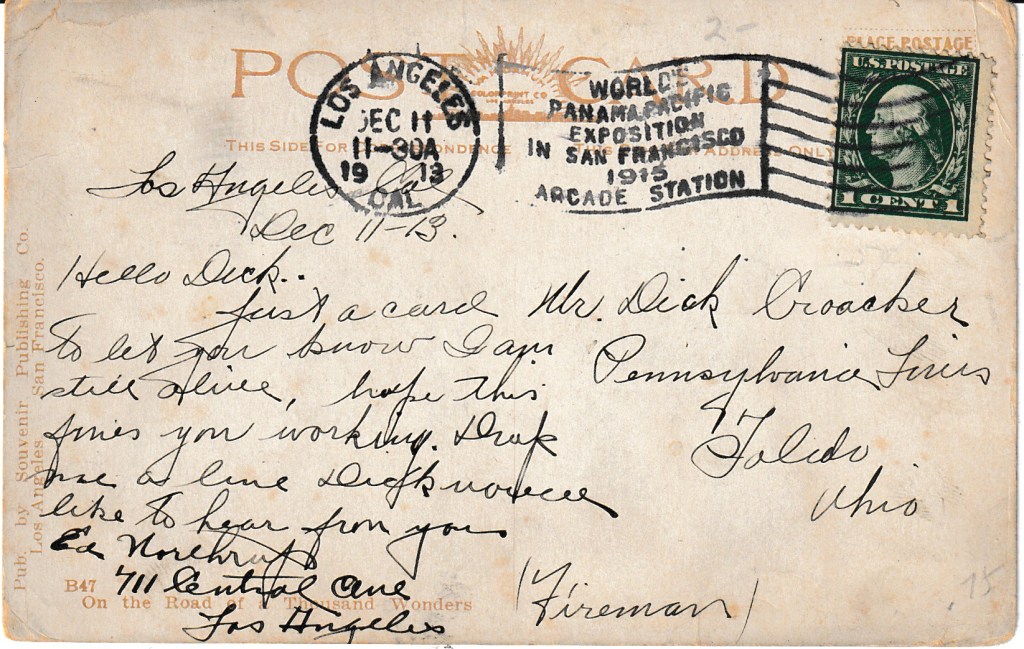 2-
POST CARD
PLACE POSTAGE
U.S. POSTAGE
1 CENT 1
LOS ANGELES
DEC 11
11-30A
19 13
CAL.
WORLD'S
PANAMA-PACIFIC
EXPOSITION
IN SAN FRANCISCO
1915
ARCADE STATION
THIS SIDE FOR CORRESPONDENCE
ADDRESS ONLY
Los Angeles Cal
Dec 11-13.
Hello Dick..
Just a card
to let you know I am
still alive, hope this
fines you working. Drop
me a line Dick
like to hear from you
Ed Northrup
711 Central Ave
Los Angeles
Mr. Dick Croacker
Pennsylvania Lines
Toledo
Ohio
(Fireman)
.15
Pub. by Souvenir Publishing Co.
Los Angeles San Francisco.
B47
On the Road of a Thousand Wonders